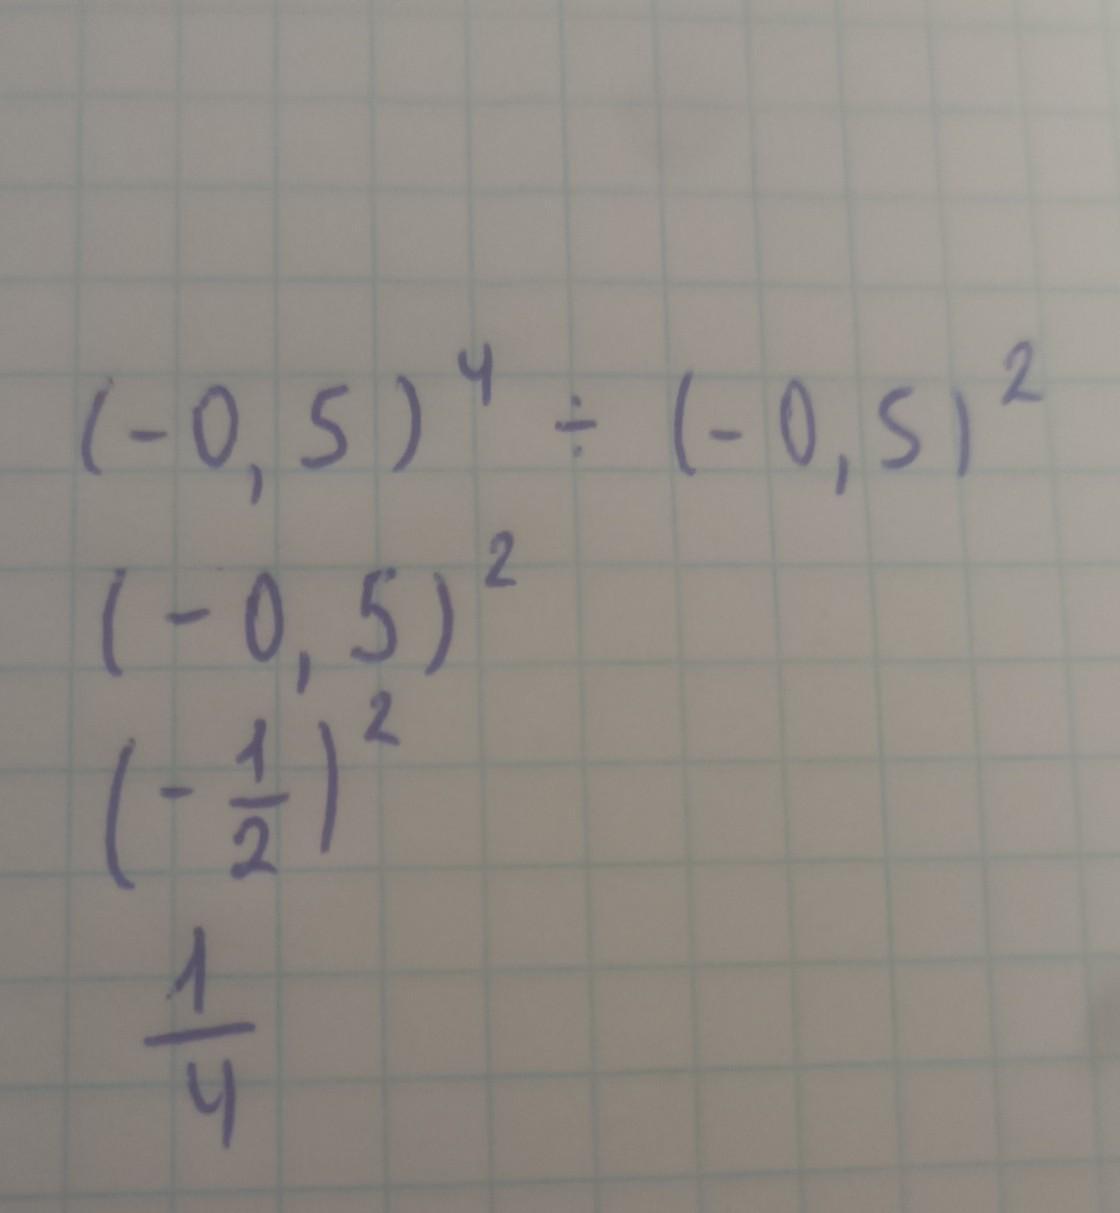 (-0,5)⁴ ÷ (-0,5)²
(-0,5)²
(-1/2)²
1/4